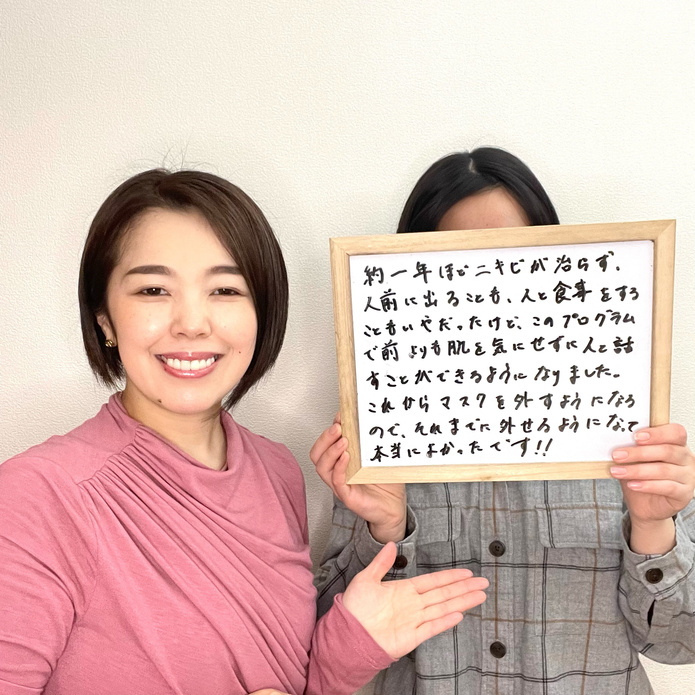 約一年ほどニキビが治らず、
人前に出ることも、人と食事をする
こともいやだったけど、このプログラム
で前よりも肌を気にせずに人と話
すことができるようになりました。
これからマスクを外すようになる
ので、それまでに外せるようになって
本当によかったです!!